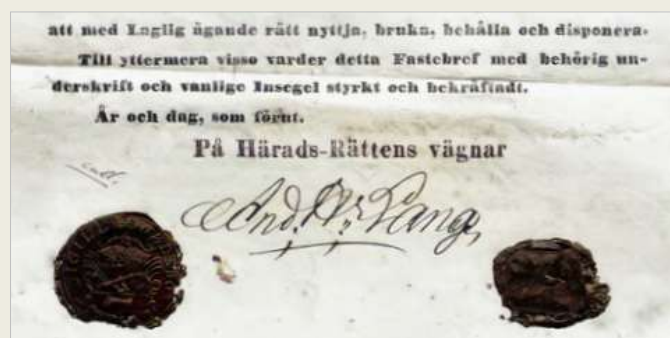 att med Laglig ägande rätt nyttja, bruka, behålla och disponera.
Till yttermera visso varder detta Fastebref med behörig un-
derskrift och vanlige Insegel styrkt och bekräftadt.
År och dag, som förut.
På Härads-Rättens vägnar
And. Lang